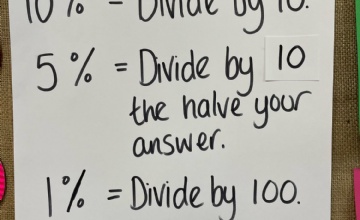 10% = Divide by 10.
5% = Divide by 10
the halve your
answer.
1% = Divide by 100.